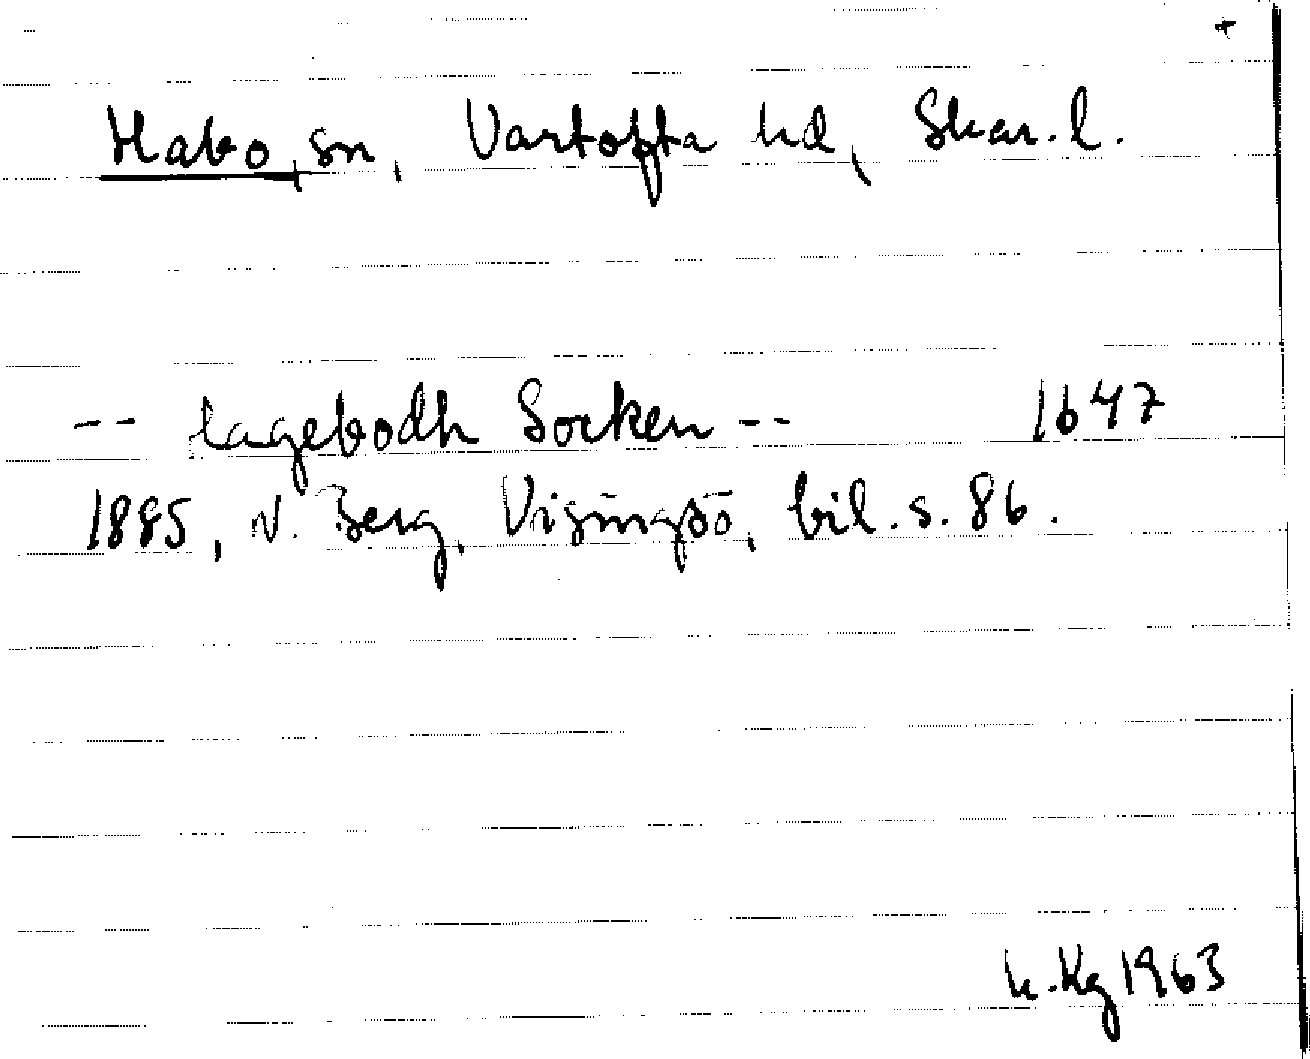 Habo, sn, Vartofta hd, Skar. l.
-- hagebodh Socken -- 1647
1885, W. Berg, Visingsö, bil. s. 86.
k. Kg 1963